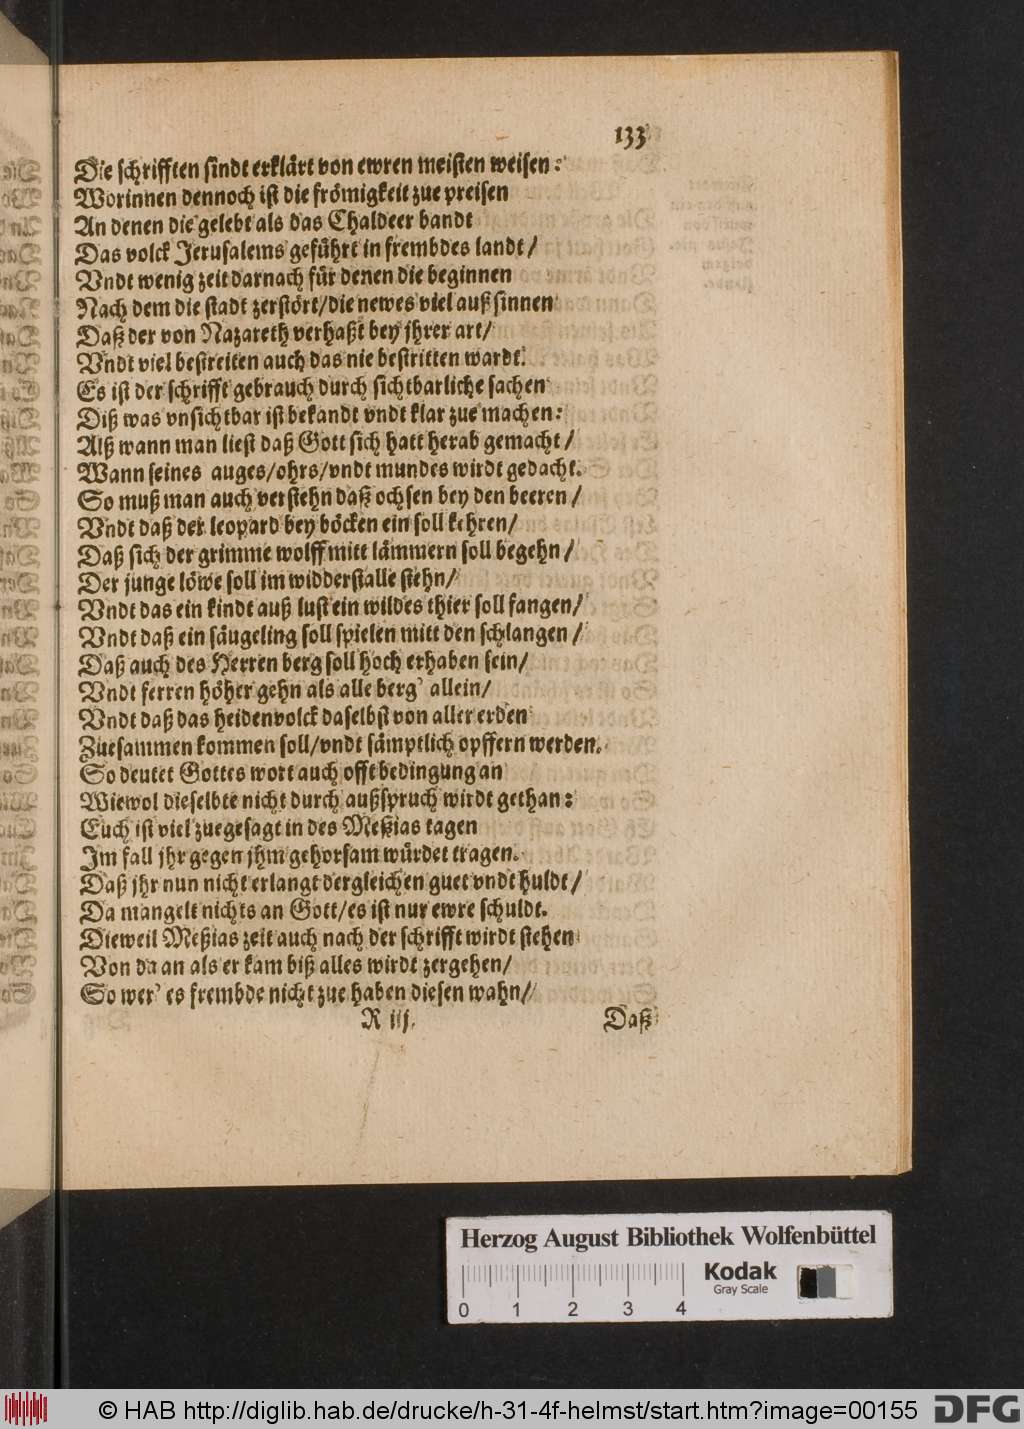 133
Die schrifften sindt erklärt von ewren meisten weisen:
Worinnen dennoch ist die frömigkeit zue preisen
An denen die gelebt als das Chaldeer bandt
Das volck Jerusalems geführt in frembdes landt/
Vndt wenig zeit darnach für denen die beginnen
Nach dem die stadt zerstört/die newes viel auß sinnen
Daß der von Nazareth verhaßt bey jhrer art/
Vndt viel bestreiten auch das nie bestritten wardt.
Es ist der schrifft gebrauch durch sichtbarliche sachen
Diß was vnsichtbar ist bekandt vndt klar zue machen:
Alß wann man liest daß Gott sich hatt herab gemacht/
Wann seines auges/ohrs/vndt mundes wirdt gedacht.
So muß man auch verstehn daß ochsen bey den beeren/
Vndt daß der leopard bey böcken ein soll kehren/
Daß sich der grimme wolff mitt lämmern soll begehn/
Der junge löwe soll im widderstalle stehn/
Vndt das ein kindt auß lust ein wildes thier soll fangen/
Vndt daß ein säugeling soll spielen mitt den schlangen/
Daß auch des Herren berg soll hoch erhaben sein/
Vndt ferren höher gehn als alle berg' allein/
Vndt daß das heidenvolck daselbst von aller erden
Zuesammen kommen soll/vndt sämptlich opffern werden.
So deutet Gottes wort auch offt bedingung an
Wiewol dieselbte nicht durch außspruch wirdt gethan:
Euch ist viel zuegesagt in des Meßias tagen
Im fall jhr gegen jhm gehorsam würdet tragen.
Daß jhr nun nicht erlangt dergleichen guet vndt huldt/
Da mangelt nichts an Gott/es ist nur ewre schuldt.
Dieweil Meßias zeit auch nach der schrifft wirdt stehen
Von da an als er kam biß alles wirdt zergehen/
So wer' es frembde nicht zue haben diesen wahn/
R iij.
Daß
Herzog August Bibliothek Wolfenbüttel
Kodak
Gray Scale
0 1 2 3 4
© HAB http://diglib.hab.de/drucke/h-31-4f-helmst/start.htm?image=00155
DFG